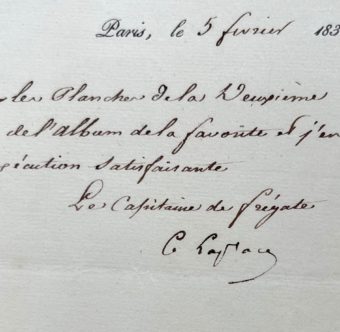 Paris, le 5 février 183
les Planches de la Deuxième
de l'album de la favorite et j'en
écution satisfaisante
Le Capitaine de frégate
C Laplace